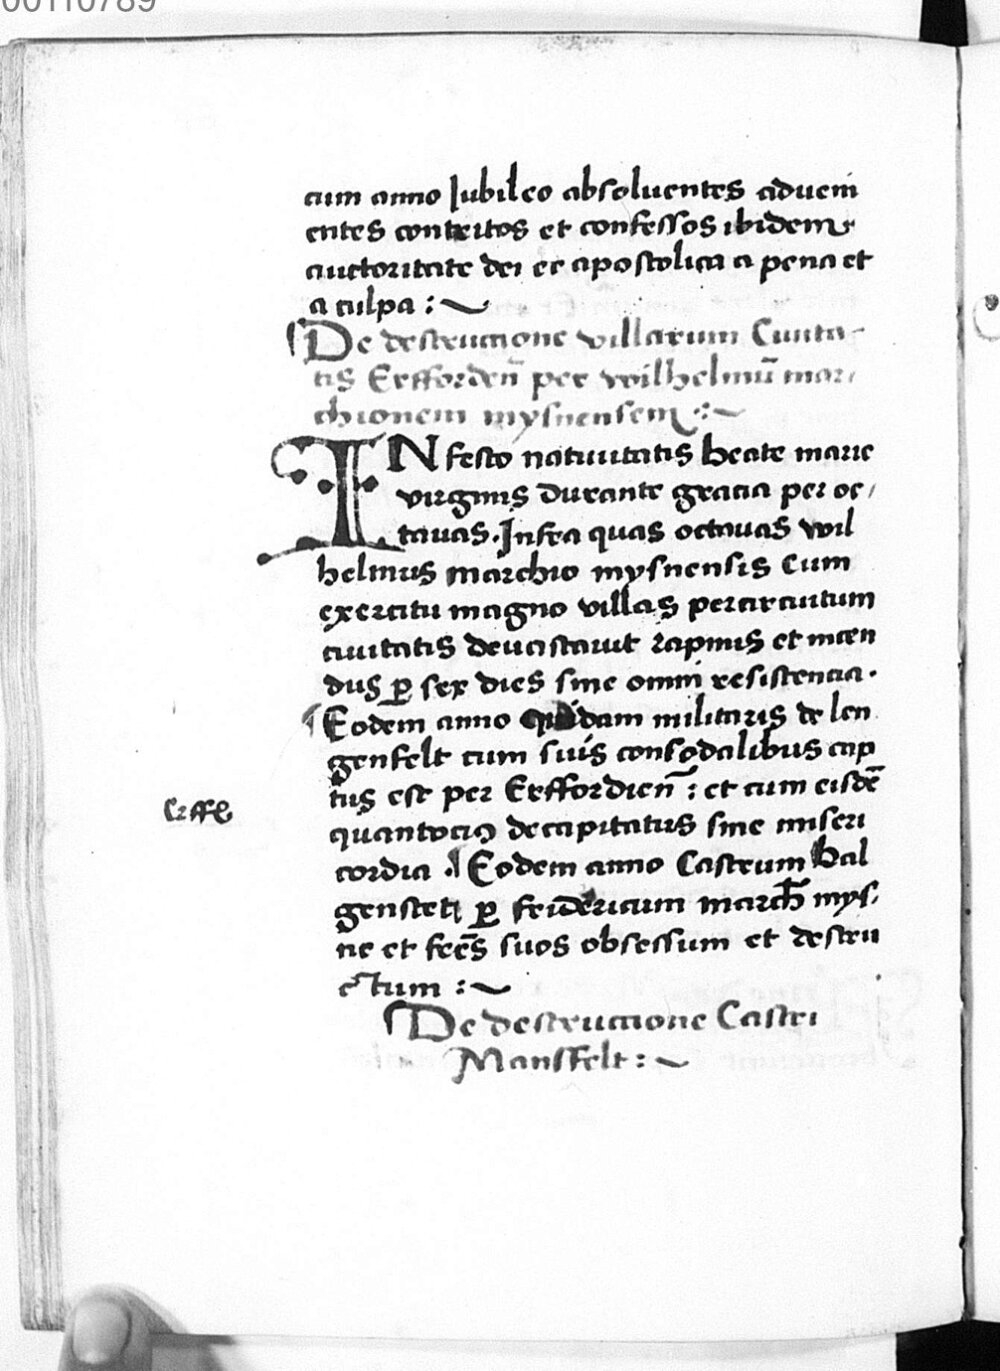 00110789
cum anno Iubileo absoluentes adueni
entes contritos et confessos ibidem
auctoritate dei et apostolica a pena et
a culpa :~
De destructione villarum Ciuita-
tis Erffordeñ per wilhelmū mar/
chionem mysnensem :~
IN festo natiuitatis beate marie
virginis durante gracia per oc/
tauas. Infra quas octauas wil
helmus marchio mysnensis Cum
exercitu magno villas percircuitum
ciuitatis deuastauit rapinis et incen
dijs ꝑ sex dies sine omni resistencia.
Eodem anno quidam militaris de len
genfelt cum suis consodalibus cap
tus est per Erffordieñ : et cum eisdē
quantocius decapitatus sine miseri
cordia . Eodem anno Castrum hal
genstet ꝑ fridericum march mys/
ne et fr̄es suos obsessum et destru
ctum :~
De destructione Castri
Mansfelt :~